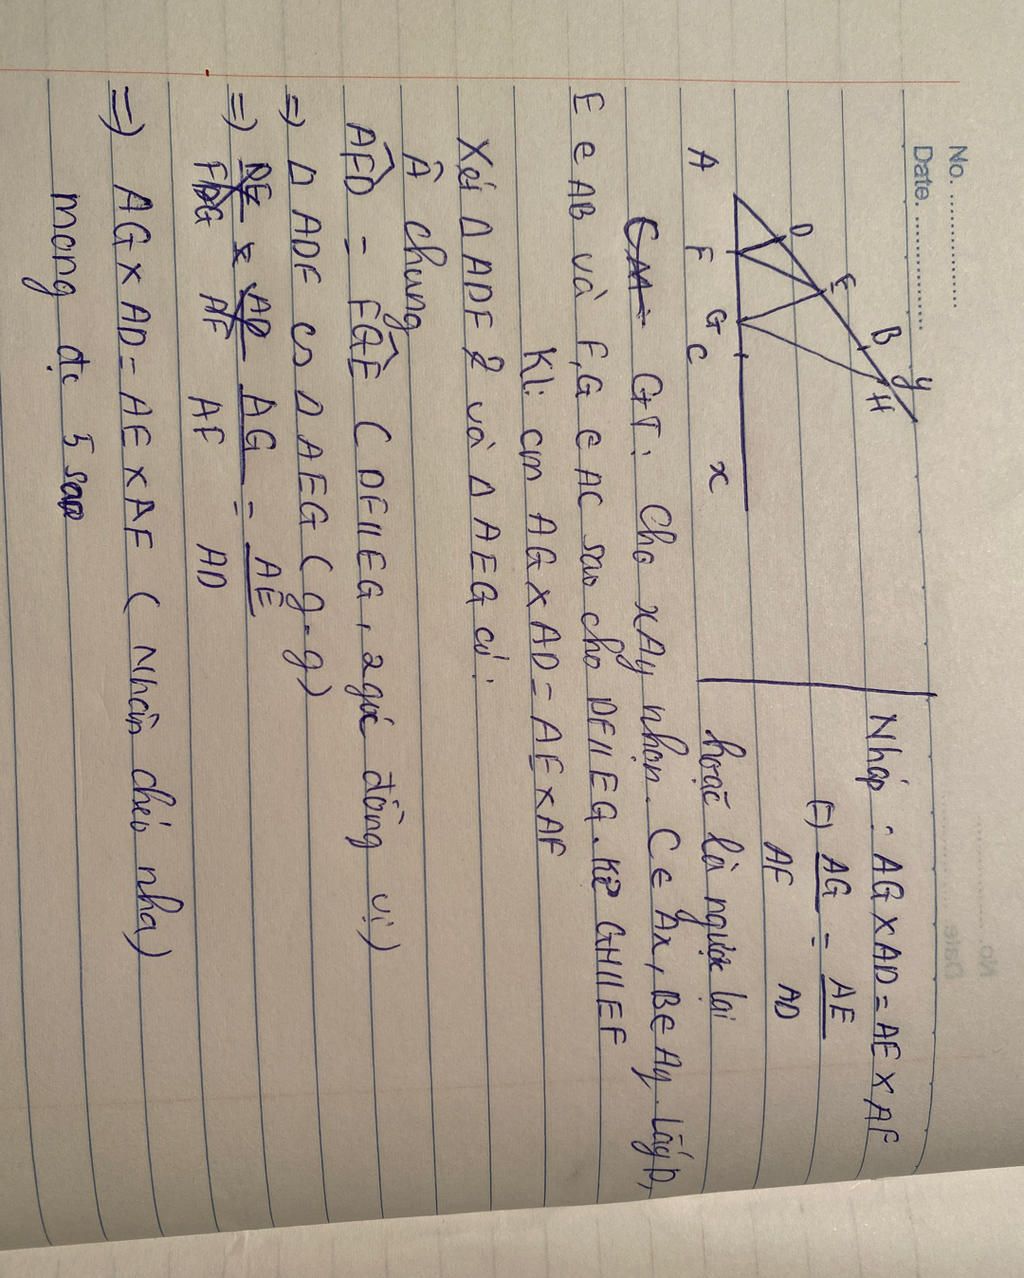 No. ..................
Date. ..................
Nháp : AG x AD = AE x AF
(=) AG = AE
AF AD
hoặc là ngược lại
D E B y H
A F G C x
GT: Cho xAy nhọn. C ∈ Ax, B ∈ Ay. Lấy D,
E ∈ AB và F, G ∈ AC sao cho DF // EG. Kẻ GH // EF
Kl: cm AG x AD = AE x AF
Xét Δ ADF và Δ AEG có:
 chung
AFD = FGE ( DF // EG, 2 góc đồng vị )
=> Δ ADF ഗ Δ AEG ( g-g )
=> AG = AE
AF AD
=> AG x AD = AE x AF ( Nhân chéo nha )
mong đc 5 sao